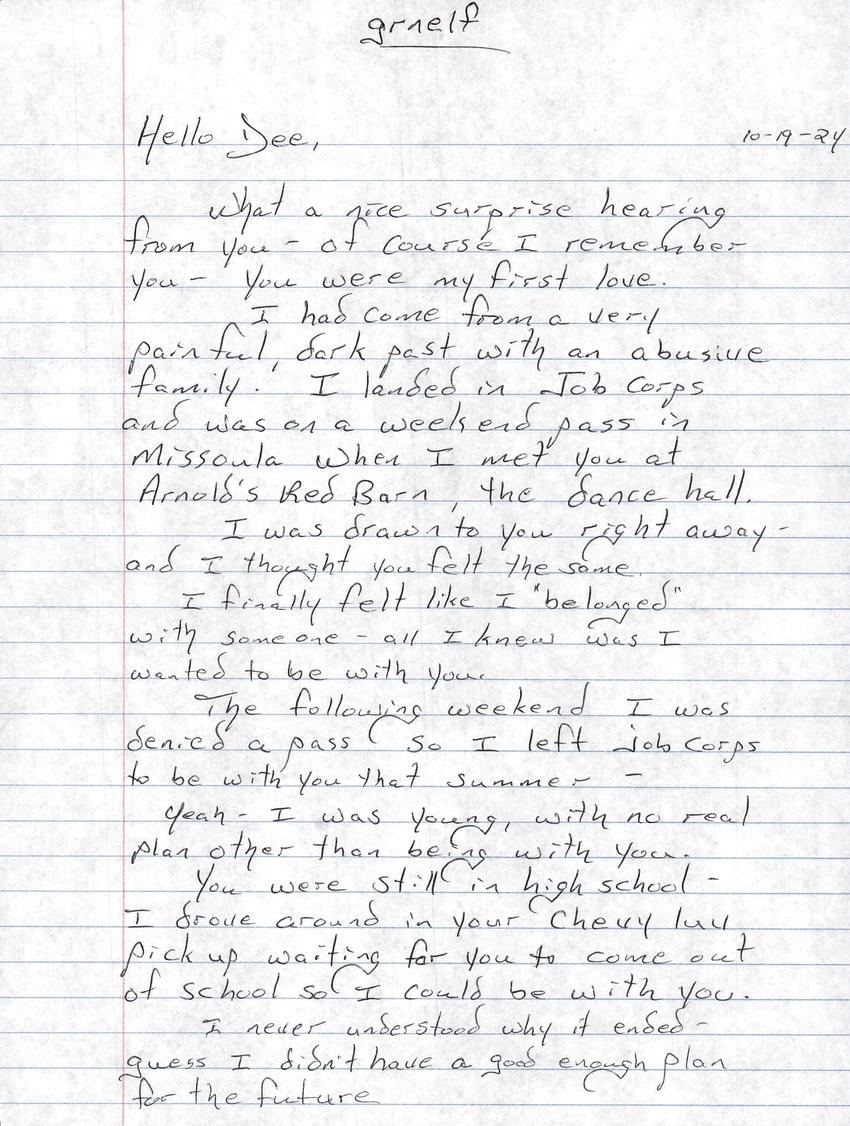 grnelf
Hello Dee,
10-19-24
What a nice surprise hearing
from you - of course I remember
you - you were my first love.
I had come from a very
painful, dark past with an abusive
family. I landed in Job Corps
and was on a weekend pass in
Missoula when I met you at
Arnold's Red Barn, the dance hall.
I was drawn to you right away -
and I thought you felt the same.
I finally felt like I "belonged"
with someone - all I knew was I
wanted to be with you.
The following weekend I was
denied a pass so I left Job Corps
to be with you that summer -
yeah - I was young, with no real
plan other than being with you.
You were still in high school -
I drove around in your Chevy luv
pick up waiting for you to come out
of school so I could be with you.
I never understood why it ended -
guess I didn't have a good enough plan
for the future